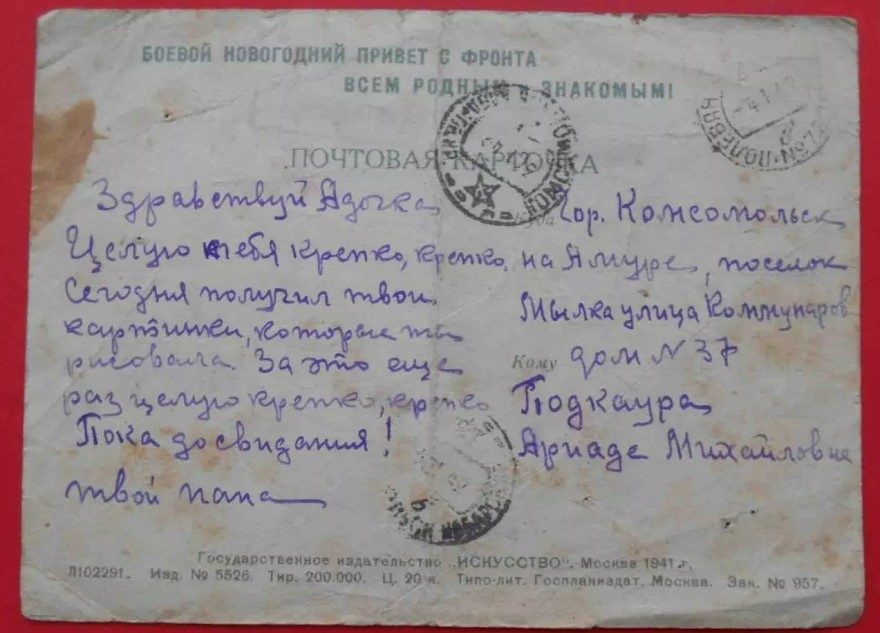 БОЕВОЙ НОВОГОДНИЙ ПРИВЕТ С ФРОНТА
ВСЕМ РОДНЫМ и ЗНАКОМЫМ!
ПОЧТОВАЯ КАРТОЧКА
Здравствуй Адочка
Целую тебя крепко, крепко,
Сегодня получил твои
картинки, которые ты
рисовала. За это еще
раз целую крепко, крепко
Пока досвидания!
твой папа
Куда гор. Комсомольск
на Амуре, поселок
Мылка улица Коммунаров
дом N 37
Кому
Подкаура
Ариаде Михайловне
Государственное издательство „ИСКУССТВО", Москва 1941 г.
Л102291. Изд. № 5526. Тир. 200.000. Ц. 20 к. Типо-лит. Госпланиздат. Москва. Зак. № 957.